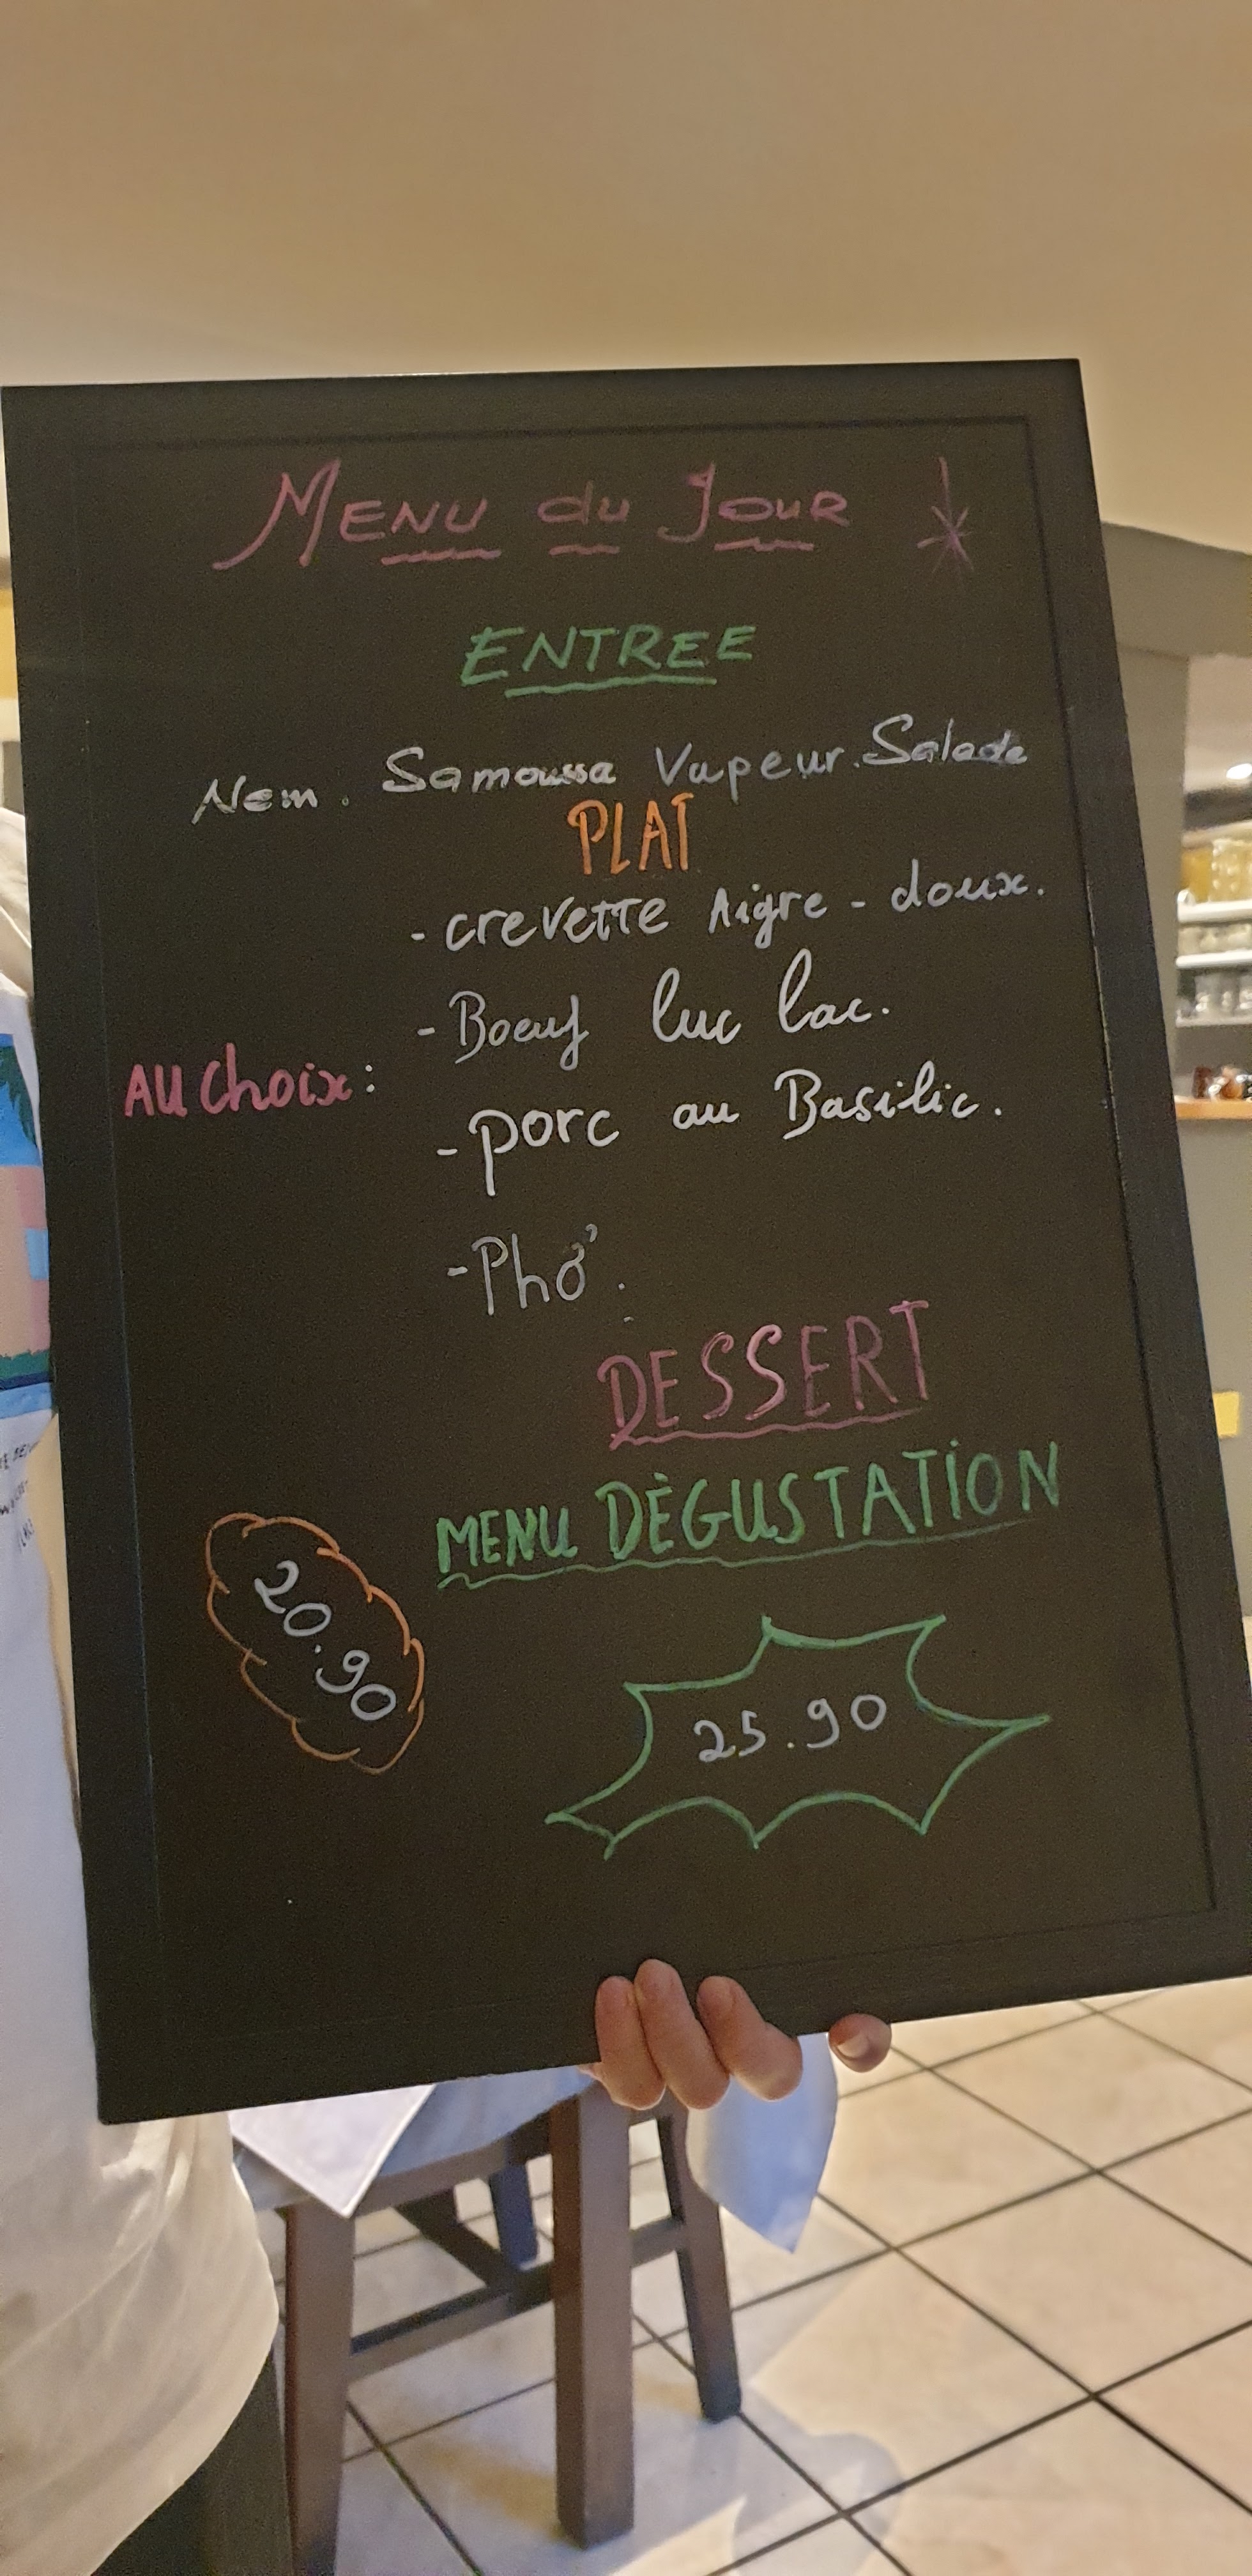 MENU du JOUR
ENTREE
Nem. Samoussa Vapeur. Salade
PLAT
- crevette Aigre - doux.
- Boeuf luc lac.
AU choix:
- porc au Basilic.
- Phở.
DESSERT
MENU DÉGUSTATION
20.90
25.90